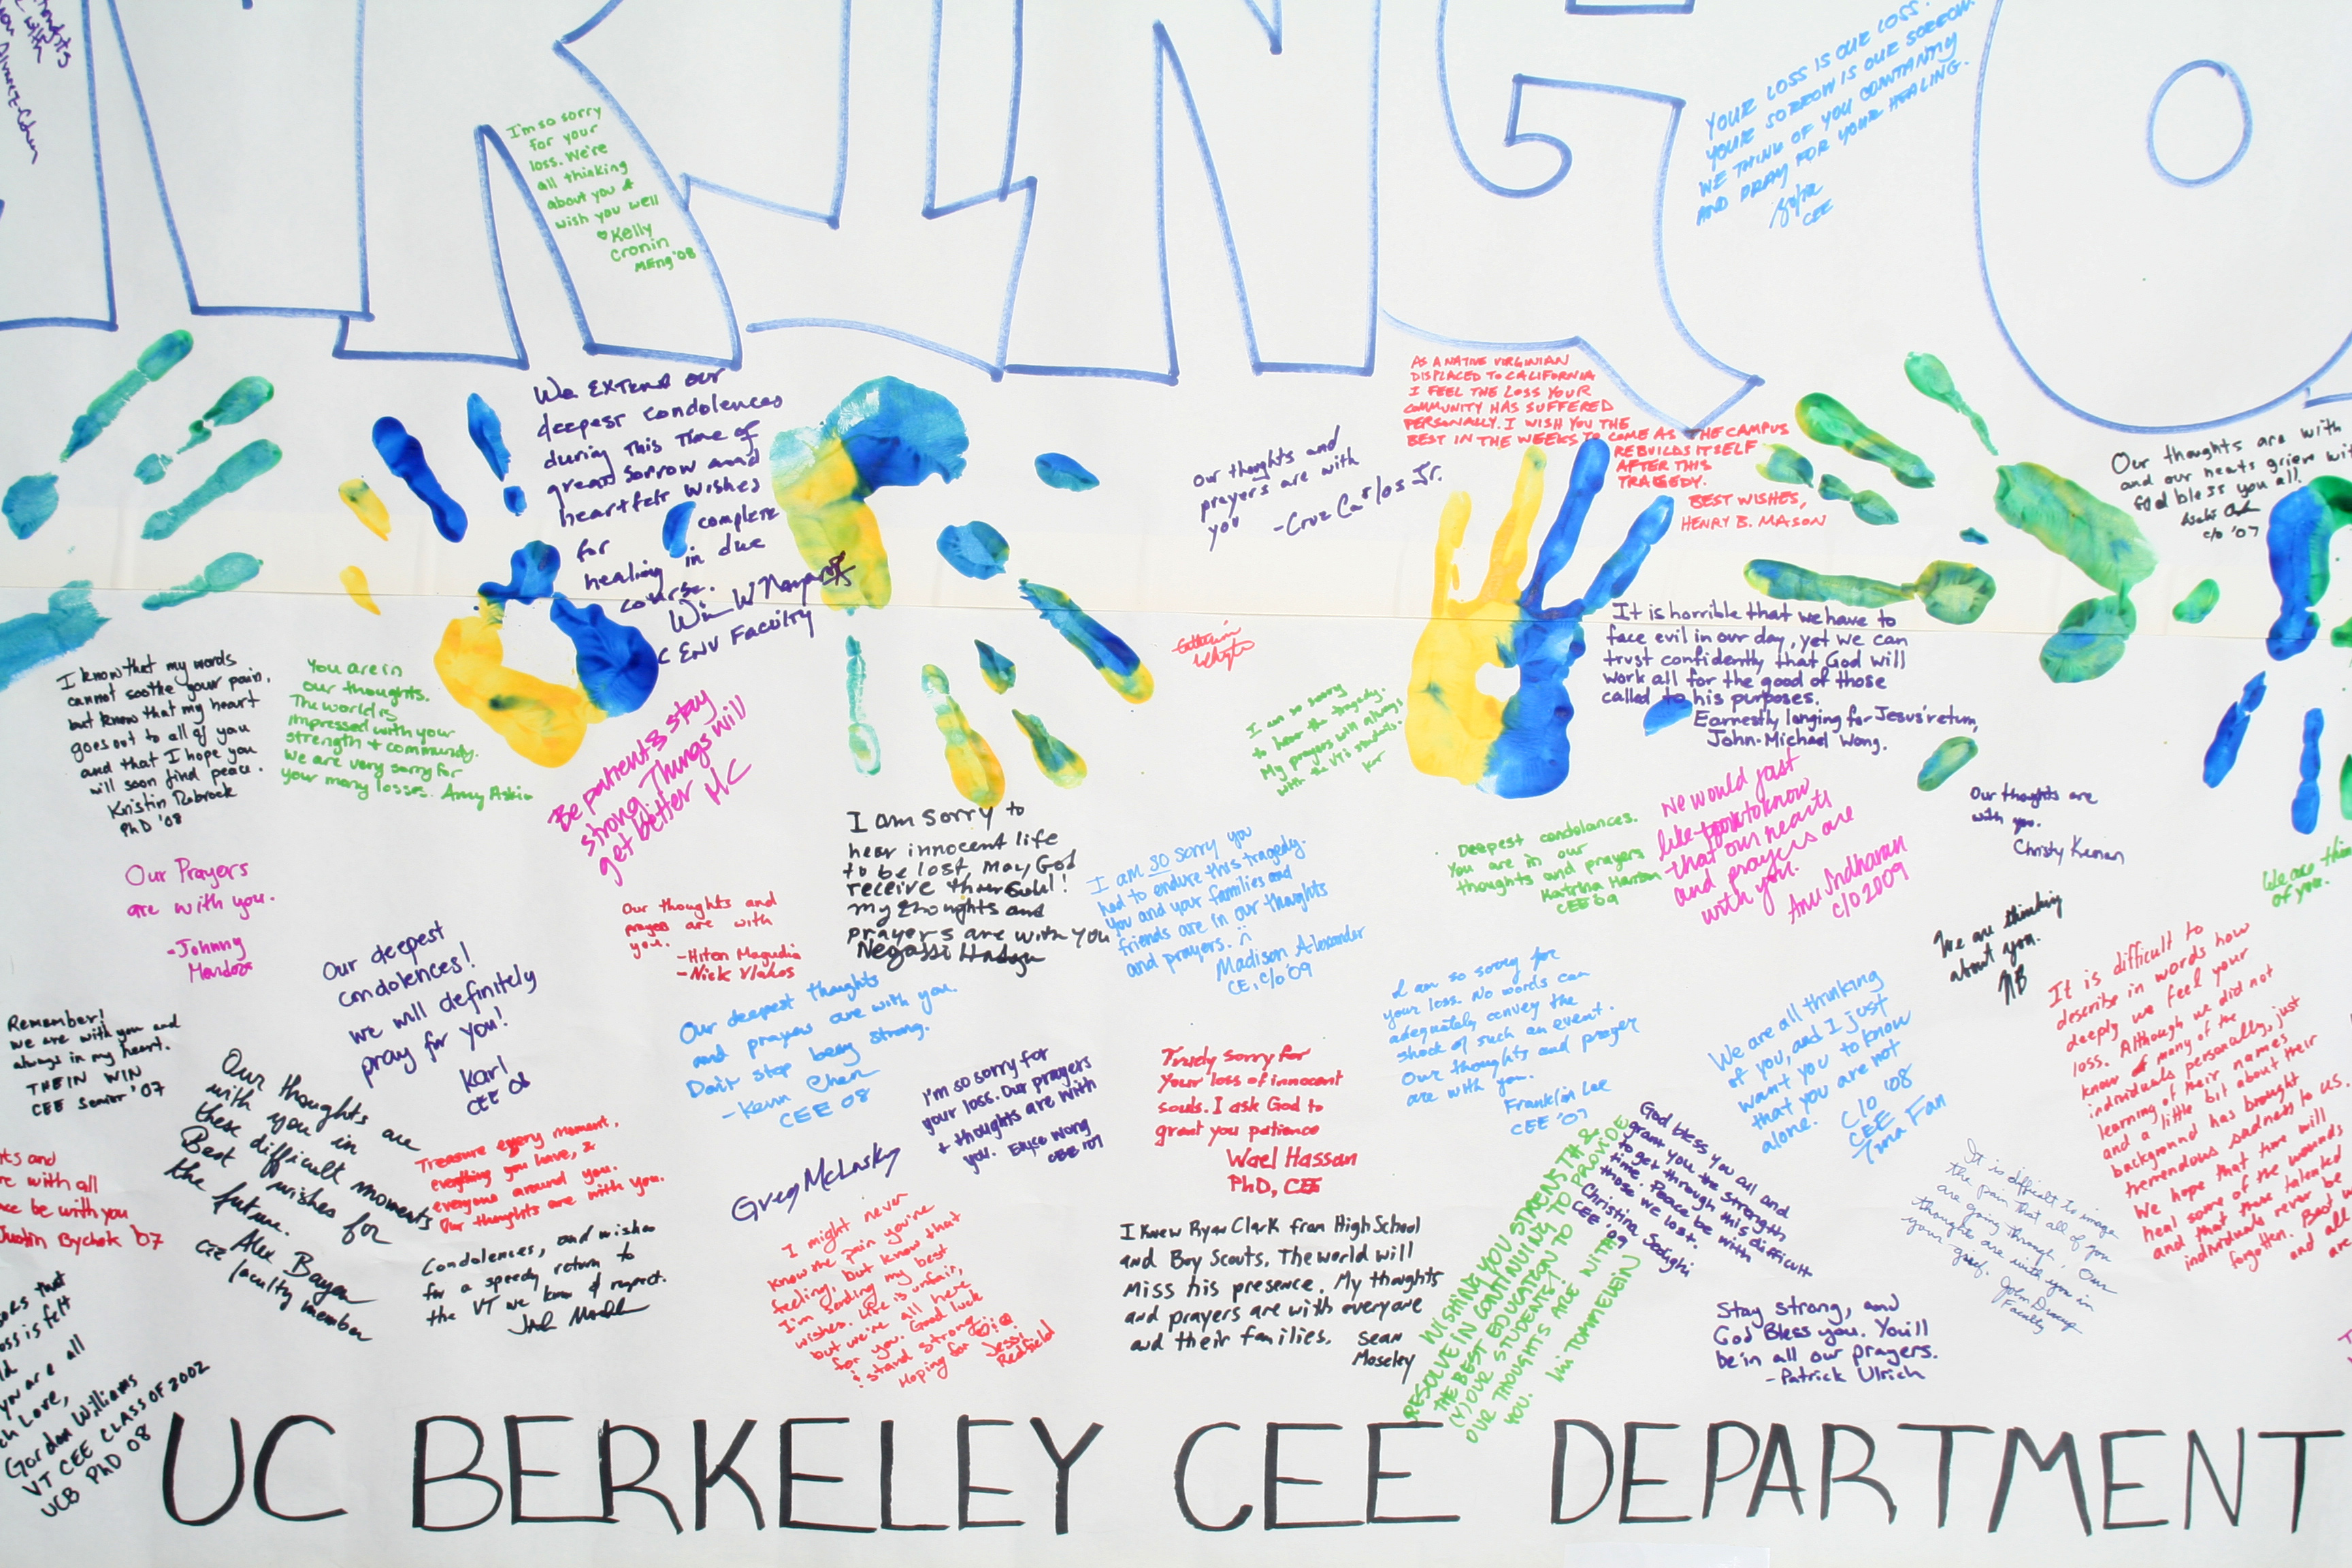 I'm so sorry
for your
loss. We're
all thinking
about you &
wish you well
♡ Kelly
Cronin
MEng '08
YOUR LOSS IS OUR LOSS.
YOUR SORROW IS OUR SORROW.
WE THINK OF YOU CONTANTLY
AND PRAY FOR YOUR HEALING.
CEE
We extend our
deepest condolences
during this time of
great sorrow and
heartfelt wishes
for complete
healing in due
course.
ENV Faculty
Our thoughts and
prayers are with
you
-Cruz Carlos Jr.
AS A NATIVE VIRGINIAN
DISPLACED TO CALIFORNIA
I FEEL THE LOSS YOUR
COMMUNITY HAS SUFFERED
PERSONALLY. I WISH YOU THE
BEST IN THE WEEKS TO COME AS THE CAMPUS
REBUILDS ITSELF
AFTER THIS
TRAGEDY.
BEST WISHES,
HENRY B. MASON
Our thoughts are with
and our hearts grieve wit
God bless you all.
c/o '07
I know that my words
cannot soothe your pain,
but know that my heart
goes out to all of you
and that I hope you
will soon find peace.
Kristin Robrock
PhD '08
You are in
our thoughts.
The world is
impressed with your
strength + community.
We are very sorry for
your many losses. Amy Askin
Be patient & stay
strong. Things will
get better MC
I am so sorry
to hear the tragedy.
My prayers will always
with the VT's students.
It is horrible that we have to
face evil in our day, yet we can
trust confidently that God will
work all for the good of those
called to his purposes.
Earnestly longing for Jesus' return,
John-Michael Wong.
I am sorry to
hear innocent life
to be lost, may God
receive their soul!
my thoughts and
prayers are with you
Negassi
I am so sorry you
had to endure this tragedy.
You and your families and
friends are in our thoughts
and prayers.
Madison Alexander
CE, c/o '09
Deepest condolances.
You are in our
thoughts and prayers
Katrina
CEE '09
We would just
like to know
that our hearts
and prayers are
with you.
Anu Sridharan
c/o 2009
Our thoughts are
with you.
Christy
We are thin
of you.
Our Prayers
are with you.
-Johnny
Mendoza
Our thoughts and
prayers are with
you.
-Hiten Magudia
-Nick Vlahos
Our deepest
condolences!
we will definitely
pray for you!
Karl
CEE 08
Our deepest thoughts
and prayers are with you.
Don't stop being strong.
-Kevin Chen
CEE 08
I am so sorry for
your loss. No words can
adequately convey the
shock of such an event.
Our thoughts and prayer
are with you.
Franklin Lee
CEE '07
We are all thinking
of you, and I just
want you to know
that you are not
alone. c/o '08
CEE
Tina Fan
We are thinking
about you.
NB
It is difficult to
describe in words how
deeply we feel your
loss. Although we did not
know many of the
individuals personally, just
learning of their names
and a little bit about their
background has brought
tremendous sadness to us.
We hope that time will
heal some of the wounds
and that these talented
individuals never be
forgotten. Best
and all
are
Remember!
we are with you and
always in my heart.
THEIN WIN
CEE Senior '07
Our thoughts are
with you in
these difficult moments
Best wishes for
the future.
Alex Bayen
CEE faculty member
I'm so sorry for
your loss. Our prayers
+ thoughts are with
you. Wong
CEE '07
Truely sorry for
your loss of innocent
souls. I ask God to
grant you patience
Wael Hassan
PhD, CEE
Treasure every moment,
everything you have, &
everyone around you.
Our thoughts are with you.
Greg McLaskey
God bless you all and
grant you the strength
to get through this difficult
time. Peace be with
those we lost.
Christina Sedighi
CEE '09
It is difficult to image
the pain that all of you
are going through. Our
thoughts are with you in
your grief. John
Faculty
ts and
re with all
ce be with you
Justin Bychek '07
Condolences, and wishes
for a speedy return to
the VT we know & respect.
I might never
know the pain you're
feeling, but know that
I'm sending my best
wishes. Life is unfair,
but we're all here
for you. Good luck
& stand strong
Hoping for Jessi
Redfield
I knew Ryan Clark from High School
and Boy Scouts. The world will
Miss his presence. My thoughts
and prayers are with everyone
and their families. Sean
Moseley
WISHING YOU STRENGTH &
RESOLVE IN CONTINUING TO PROVIDE
THE BEST EDUCATION TO
(Y)OUR STUDENTS!
OUR THOUGHTS ARE WITH
YOU. IRIS TOMMELEIN
Stay strong, and
God Bless you. You'll
be in all our prayers.
-Patrick Ulrich
oss is felt
you are all
ch Love,
Gordon Williams
VT CEE CLASS OF 2002
UCB PhD 08
UC BERKELEY CEE DEPARTMENT